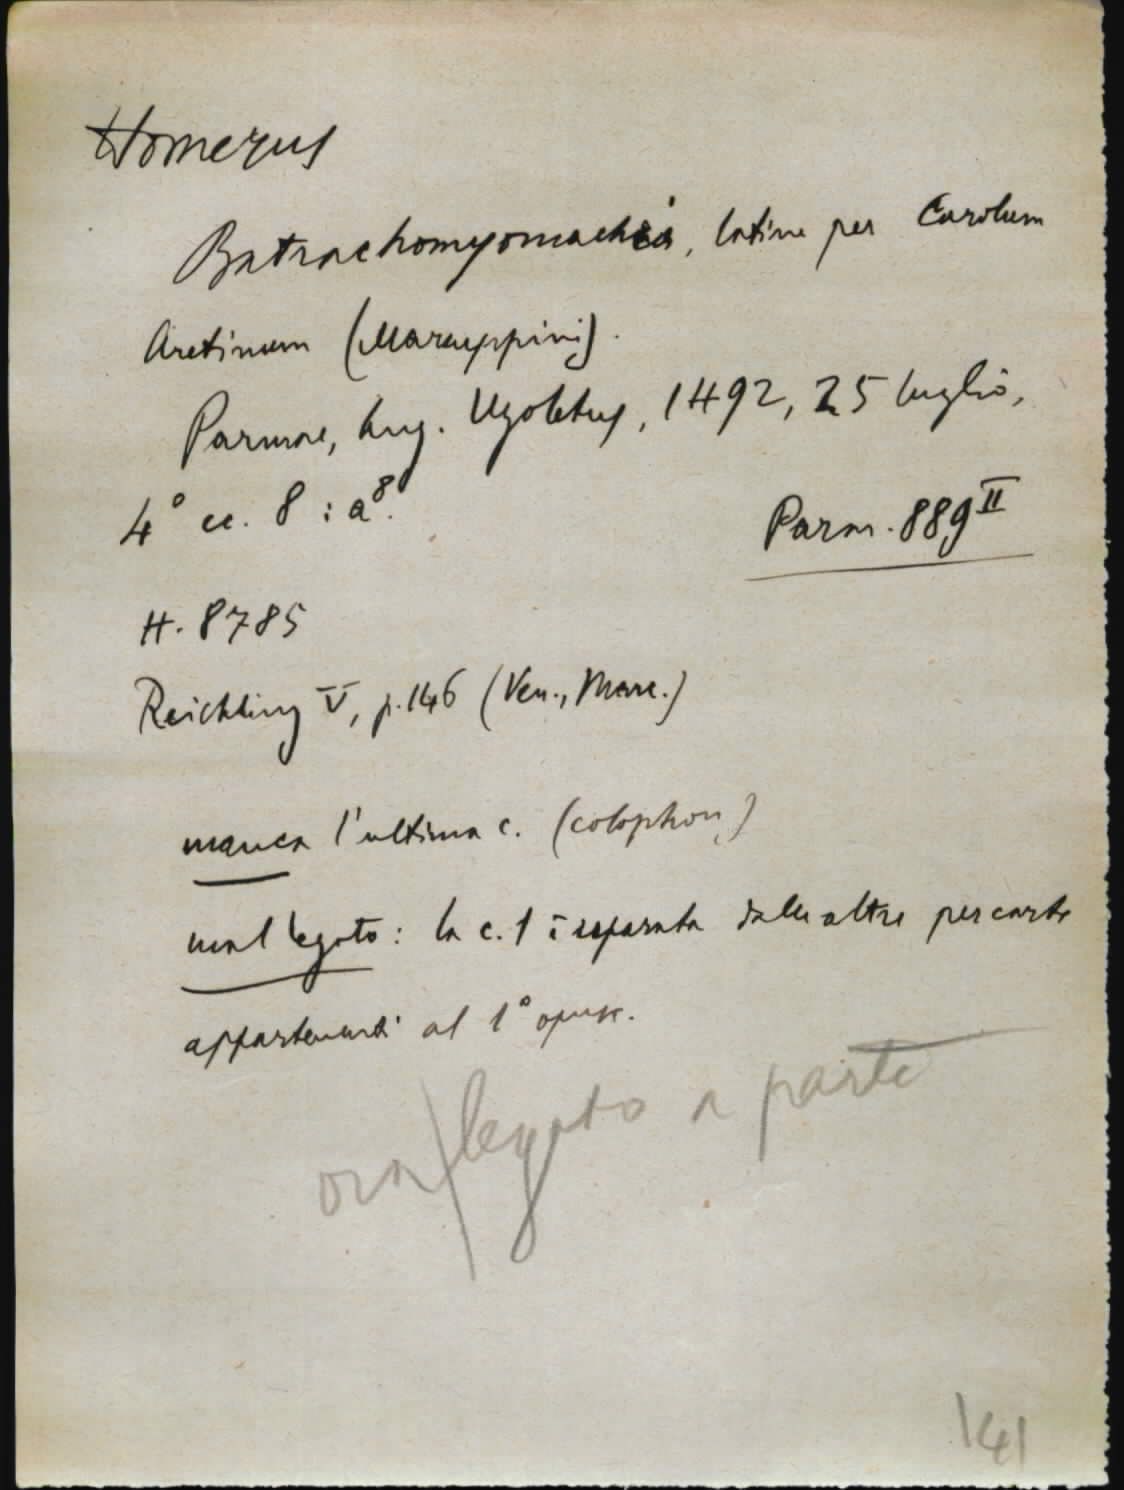 Homerus
Batrachomyomachia, latine per Carolum
Aretinum (Marsuppini).
Parmae, Ang. Ugoletus, 1492, 25 luglio,
4° cc. 8 : a⁸.
Parm. 889 II
H. 8785
Reichling V, p. 146 (Ven., Marc.)
manca l'ultima c. (colophon)
mal legato: la c. 1 è separata dalle altre per carte
appartenenti al 1° opusc.
ora legato a parte
141